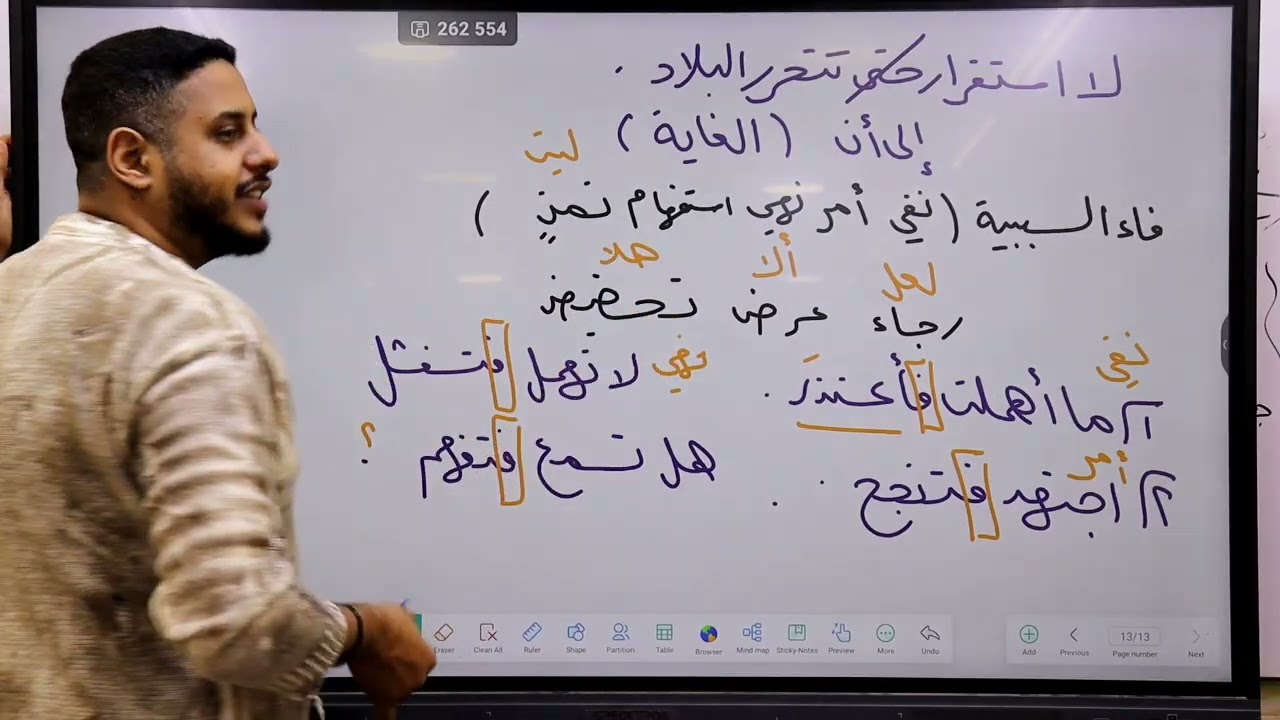 262 554
لا استقرار حتى تتحرر البلاد .
إلى أن ( الغاية )
ليت
فاء السببية ( نفي أمر نهي استفهام تمنٍ )
لعل ألا هلا
رجاء عرض تحضيض
نفي
١٢ ما أهملت فأعتذرَ .
نهي لا تهمل فتفشل
أمر
٢٢ اجتهد فتنجح .
هل تسمع فتفهم ؟
Eraser Clean All Ruler Shape Partition Table Browser Mind map Sticky-Notes Preview More Undo
Add Previous 13/13 Page number Next